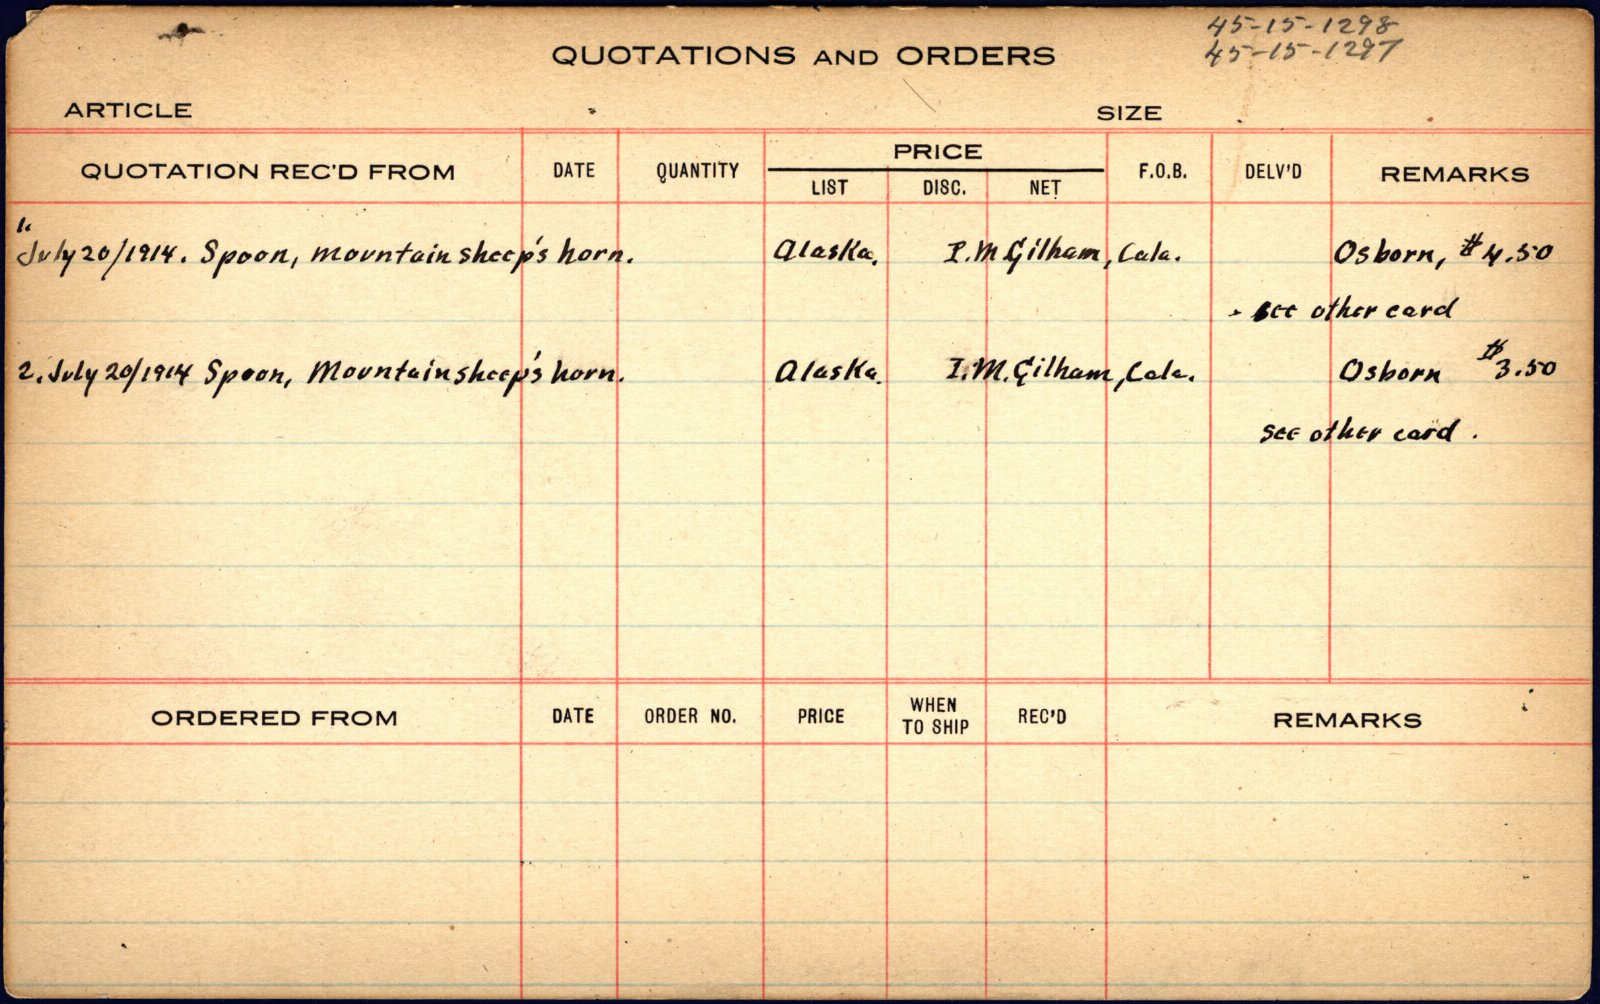 45-15-1298
45-15-1297
QUOTATIONS AND ORDERS
ARTICLE SIZE
QUOTATION REC'D FROM DATE QUANTITY PRICE LIST DISC. NET F.O.B. DELV'D REMARKS
1. July 20/1914. Spoon, mountain sheep's horn. Alaska. I. M Gilham, Cala. Osborn, $4.50
see other card
2. July 20/1914 Spoon, Mountain sheep's horn. Alaska. I. M. Gilham, Cala. Osborn $3.50
see other card.
ORDERED FROM DATE ORDER NO. PRICE WHEN TO SHIP REC'D REMARKS